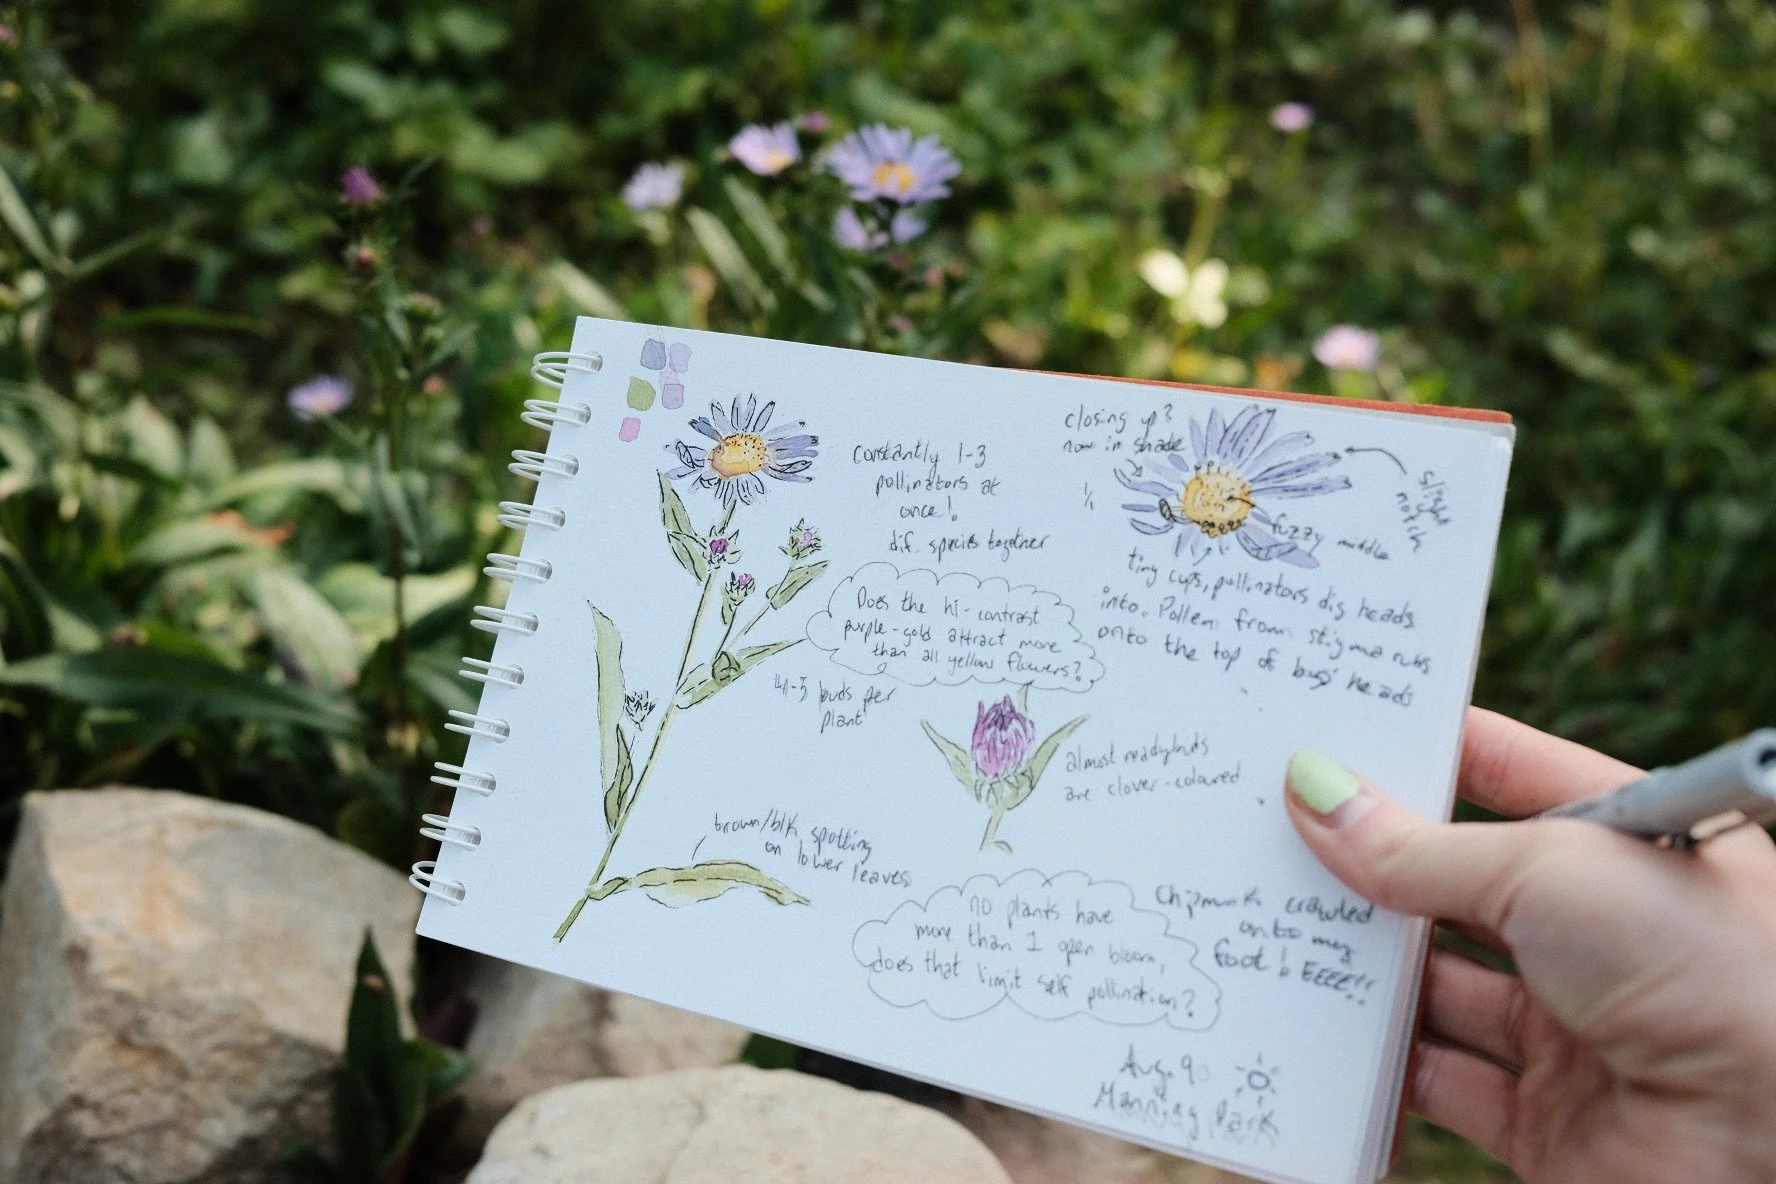 constantly 1-3
pollinators at
once!
dif. species together
closing up?
now in shade
1/1
slight
notch
fuzzy middle
tiny cups, pollinators dig heads
into. Pollen from stigma rubs
onto the top of bugs heads
Does the hi-contrast
purple-gold attract more
than all yellow flowers?
4-5 buds per
plant
almost ready buds
are clover-coloured
brown/blk spotting
on lower leaves
no plants have
more than 1 open bloom,
does that limit self pollination?
Chipmunk crawled
onto my
foot! EEEEE!!
Aug. 9
Manning Park